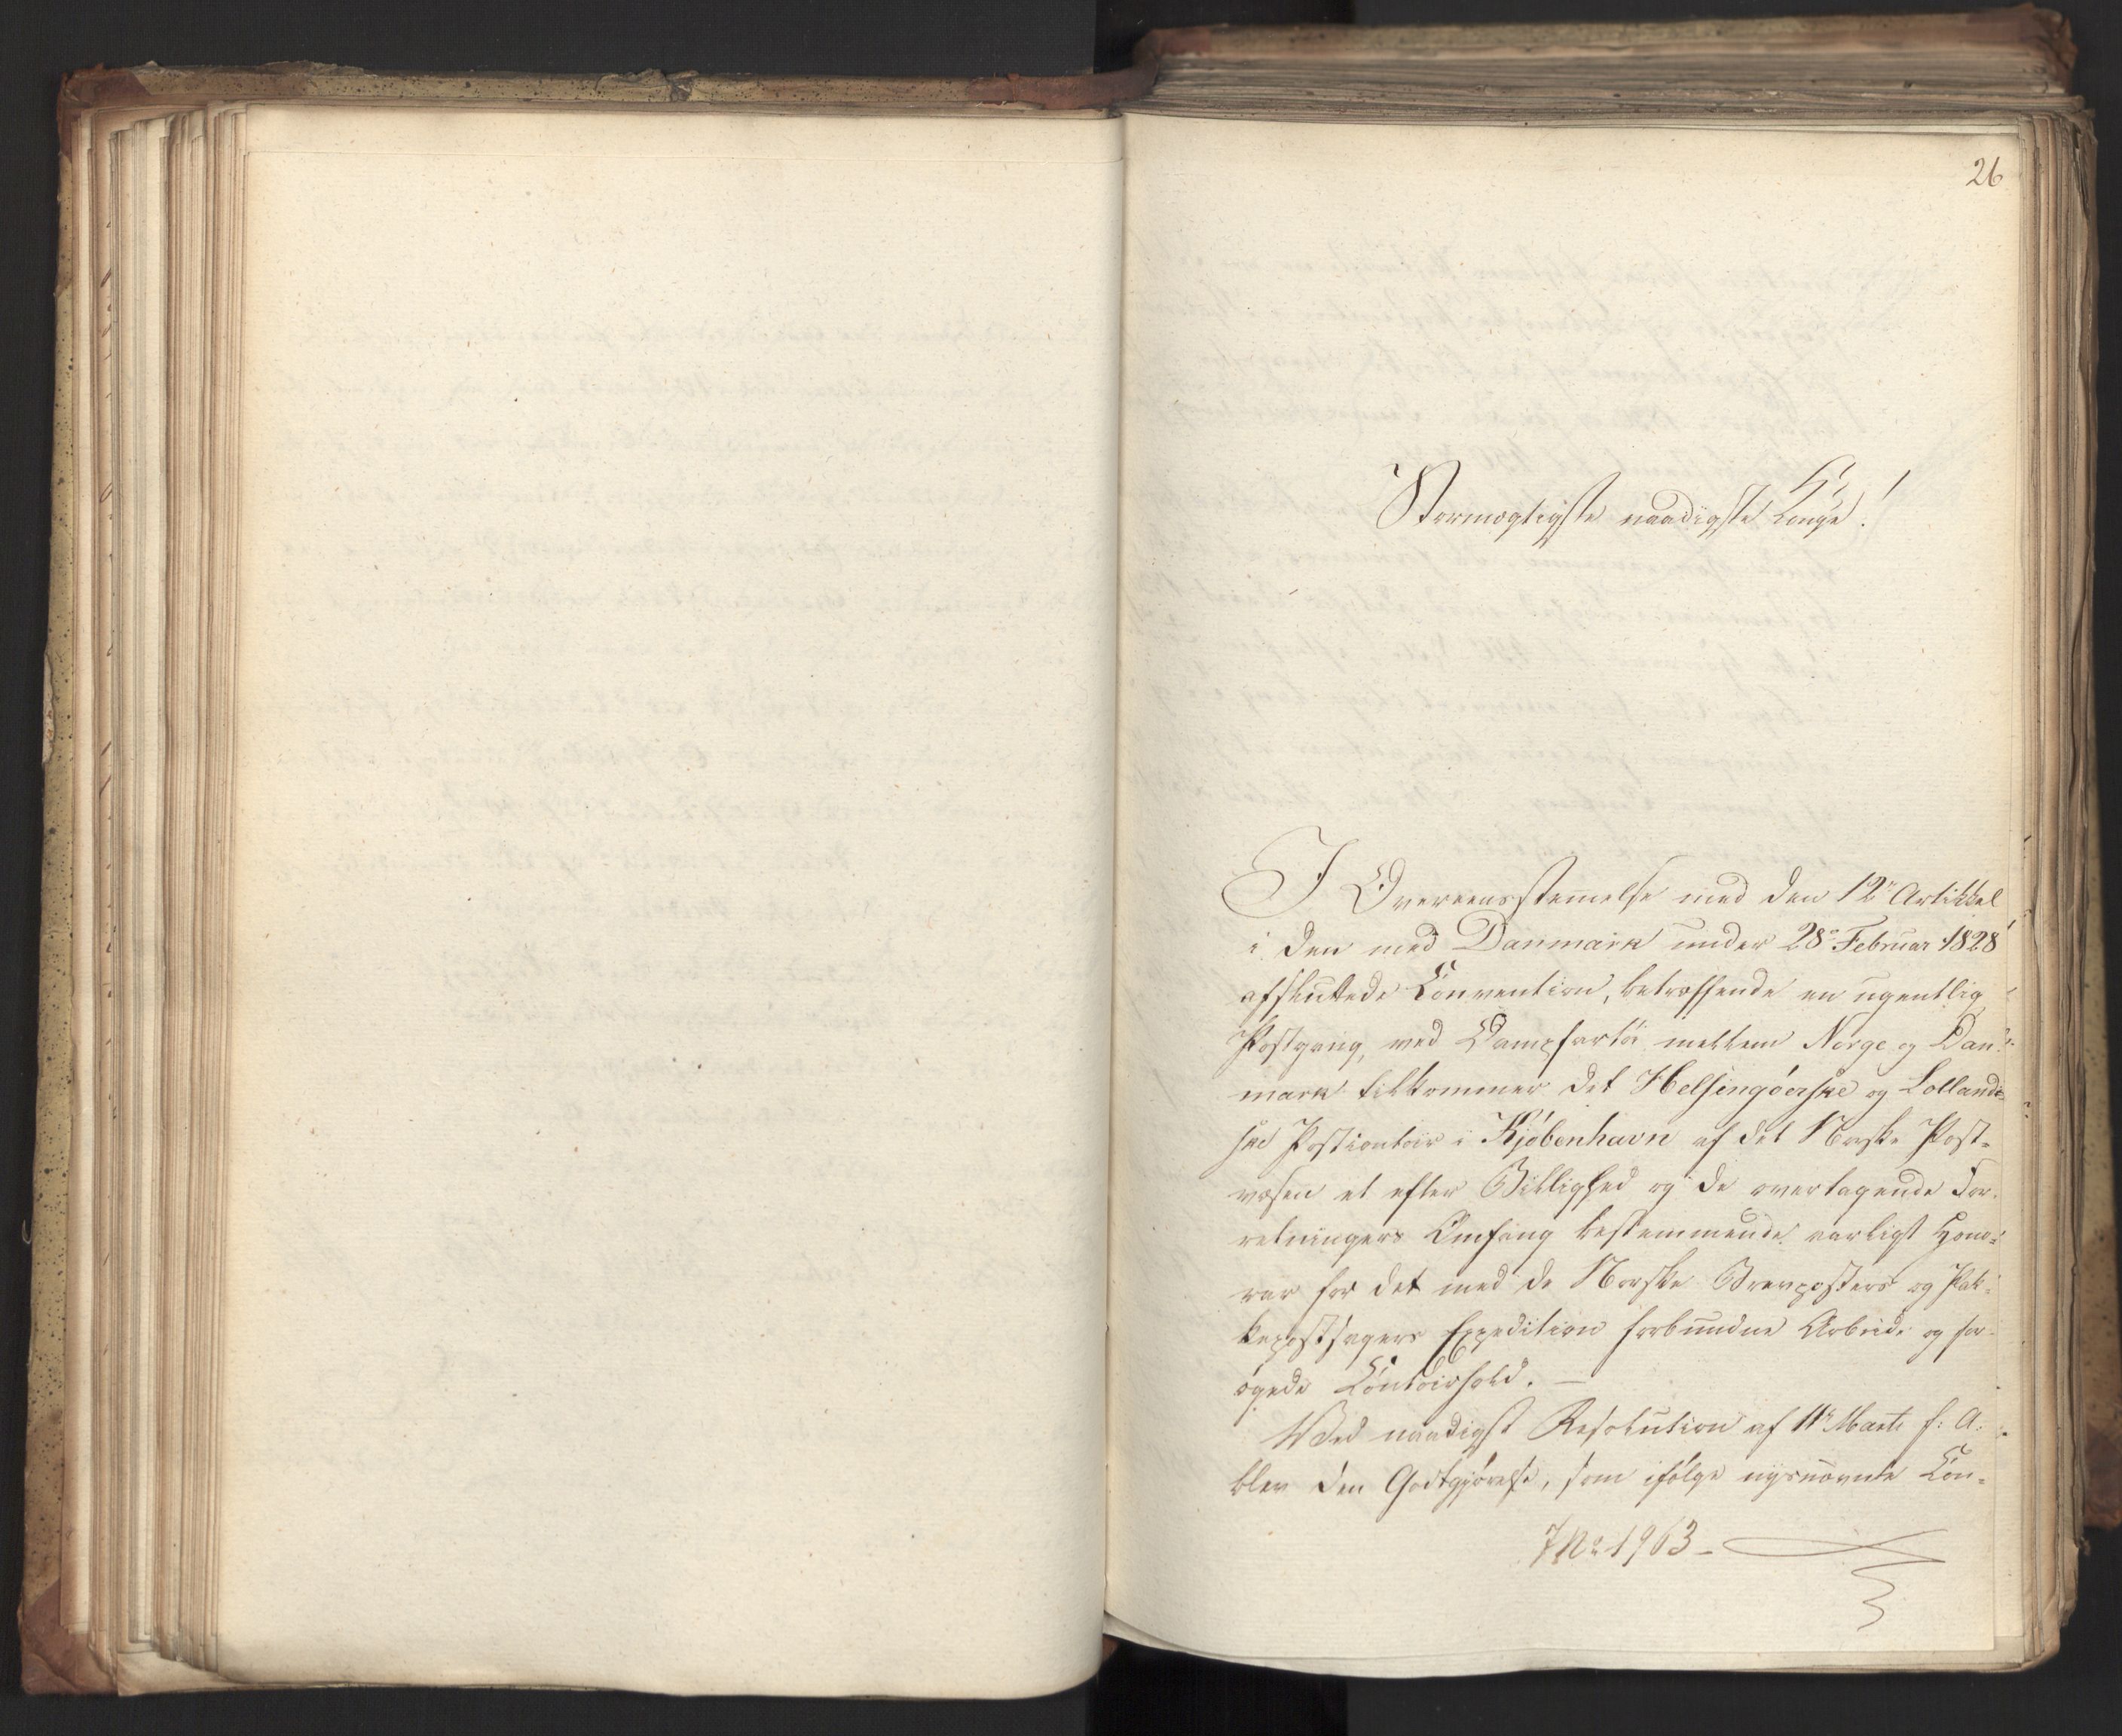 26
Stormægtigste naadigste Konge!
I Overeensstemmelse med den 12te Artikkel
i den med Danmark under 28de Februar 1828
afsluttede Convention, betræffende en ugentlig
Postgang, med Dampfartøi mellem Norge og Dan-
mark tilkommer det Helsingöerske og Lollands-
ske Postcontoir i Kjöbenhavn af det Norske Post-
væsen et efter Billighed og de overtagende For-
retningers Omfang bestemmende aarligt Hono-
rar for det med de Norske Brevposters og Pak-
kepostsagers Expedition forbundne Arbeide og for-
øgede Contoirhold. —
Ved naadigst Resolution af 11te Marts f: A:
blev den Godtgjørelse, som ifølge nysnævnte Con-
No 1963 -